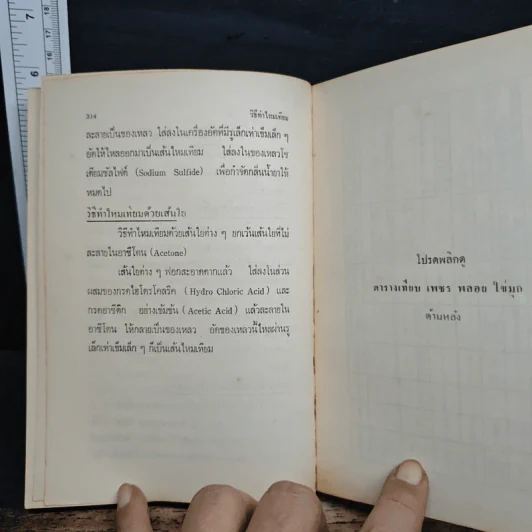 314 วิธีทำไหมเทียม
ละลายเป็นของเหลว ใส่ลงในเครื่องอัดที่มีรูเล็กเท่าเข็มเล็ก ๆ
อัดให้ไหลออกมาเป็นเส้นไหมเทียม ใส่ลงในของเหลวโซ
เดียมซัลไฟด์ (Sodium Sulfide) เพื่อกำจัดกลิ่นน้ำยาให้
หมดไป
วิธีทำไหมเทียมด้วยเส้นใย
วิธีทำไหมเทียมด้วยเส้นใยต่าง ๆ ยกเว้นเส้นใยที่ไม่
ละลายในอาซีโตน (Acetone)
เส้นใยต่าง ๆ ฟอกสะอาดดีแล้ว ใส่ลงในส่วน
ผสมของกรดไฮโดรโคลริค (Hydro Chloric Acid) และ
กรดอาซีติก อย่างเข้มข้น (Acetic Acid) แล้วละลายใน
อาซีโตน ให้กลายเป็นของเหลว อัดของเหลวนี้ไหลผ่านรู
เล็กเท่าเข็มเล็ก ๆ ก็เป็นเส้นไหมเทียม
โปรดพลิกดู
ตารางเทียบ เพชร พลอย ไข่มุก
ด้านหลัง
7
6
18
17